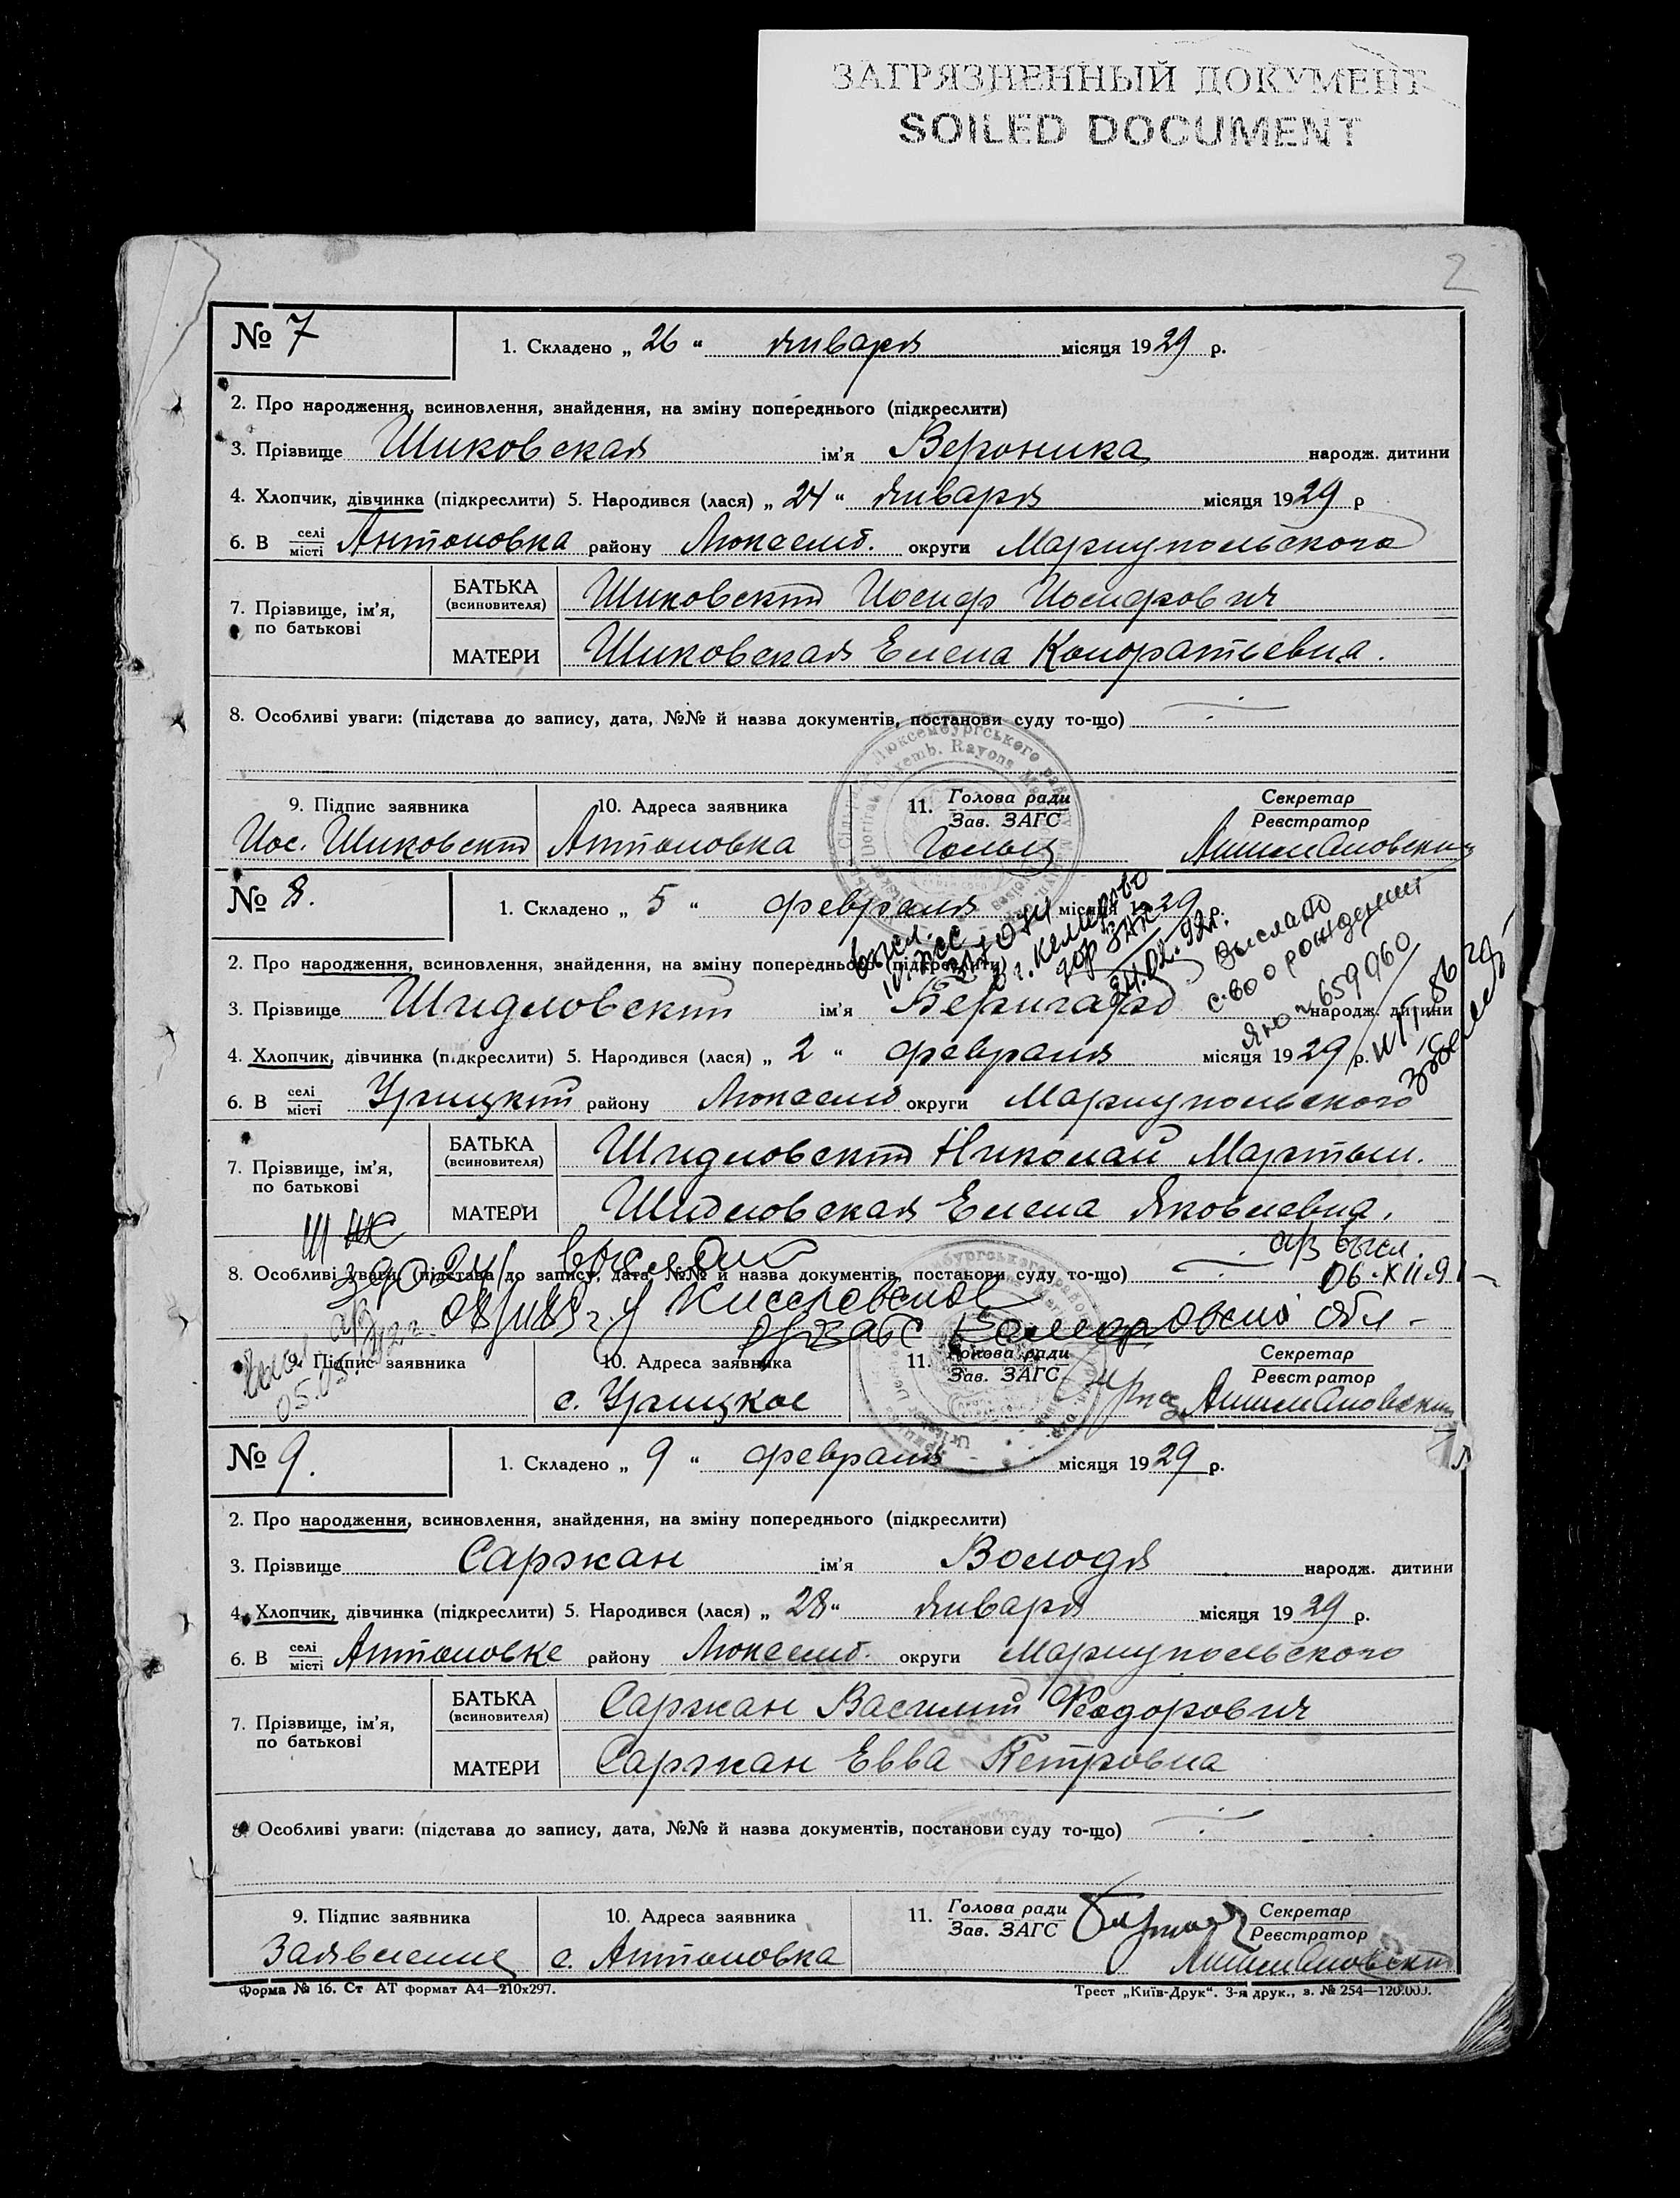 ЗАГРЯЗНЕННЫЙ ДОКУМЕНТ
SOILED DOCUMENT
2
№ 7
1. Складено „ 26 “ января місяця 1929 р.
2. Про народження, всиновлення, знайдення, на зміну попереднього (підкреслити)
3. Прізвище Шиковская ім'я Вероника народж. дитини
4. Хлопчик, дівчинка (підкреслити) 5. Народився (лася) „ 24 “ января місяця 1929 р
6. В селі місті Антоновка району Люксемб. округи Мариупольского
7. Прізвище, ім'я, по батькові
БАТЬКА (всиновителя) Шиковский Иосиф Иосифович
МАТЕРИ Шиковская Елена Кондратьевна.
8. Особливі уваги: (підстава до запису, дата, №№ й назва документів, постанови суду то-що)
9. Підпис заявника
10. Адреса заявника
11. Голова ради Зав. ЗАГС
Секретар Реєстратор
Иос. Шиковский
Антоновка
№ 8.
1. Складено „ 5 “ февраля місяця 1929 р.
2. Про народження, всиновлення, знайдення, на зміну попереднього (підкреслити)
г. Кемерово
гор ЗАГС
24.02.92г.
Выслано
с-во о рождении
659960
3. Прізвище Шидловский ім'я Бернгард народж. дитини
4. Хлопчик, дівчинка (підкреслити) 5. Народився (лася) „ 2 “ февраля місяця 1929 р.
6. В селі місті Урицкий району Люксемб округи Мариупольского
7. Прізвище, ім'я, по батькові
БАТЬКА (всиновителя) Шидловский Николай Мартын.
МАТЕРИ Шидловская Елена Яковлевна.
III ЖС
выслан
а/з высл.
06.XII.91
8. Особливі уваги: (підстава до запису, дата, №№ й назва документів, постанови суду то-що)
Киселевское
Кемеровской обл-
9. Підпис заявника
10. Адреса заявника
11. Голова ради Зав. ЗАГС
Секретар Реєстратор
с. Урицкое
№ 9.
1. Складено „ 9 “ февраля місяця 1929 р.
2. Про народження, всиновлення, знайдення, на зміну попереднього (підкреслити)
3. Прізвище Саржан ім'я Володя народж. дитини
4. Хлопчик, дівчинка (підкреслити) 5. Народився (лася) „ 28 “ января місяця 1929 р.
6. В селі місті Антоновке району Люксемб. округи Мариупольского
7. Прізвище, ім'я, по батькові
БАТЬКА (всиновителя) Саржан Василий Федорович
МАТЕРИ Саржан Евва Петровна
8. Особливі уваги: (підстава до запису, дата, №№ й назва документів, постанови суду то-що)
9. Підпис заявника
10. Адреса заявника
11. Голова ради Зав. ЗАГС
Секретар Реєстратор
Заявление
с. Антоновка
Форма № 16. Ст АТ формат А4—210х297.
Трест „Київ-Друк“. 3-я друк., з. № 254—120.000.